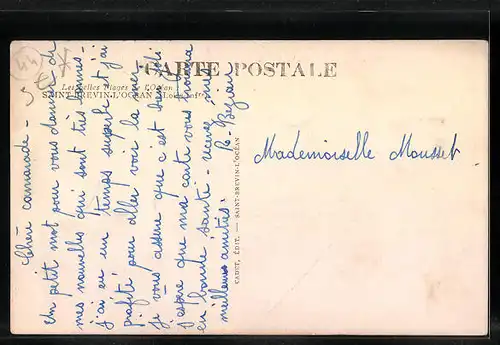 CARTE POSTALE
Les Belles Plages de l'Océan
SAINT-BREVIN-L'OCÉAN
44
Chère camarade -
Un petit mot pour vous donner de
mes nouvelles qui sont très bonnes -
j'ai eu un temps superbe et j'ai
profité pour aller voir la mer
je vous assure que c'est bien joli
J'espère que ma carte vous trouvera
en bonne santé - recevez mes
meilleures amitiés.
CADOT, ÉDIT. — SAINT-BREVIN-L'OCÉAN
Mademoiselle Mousset